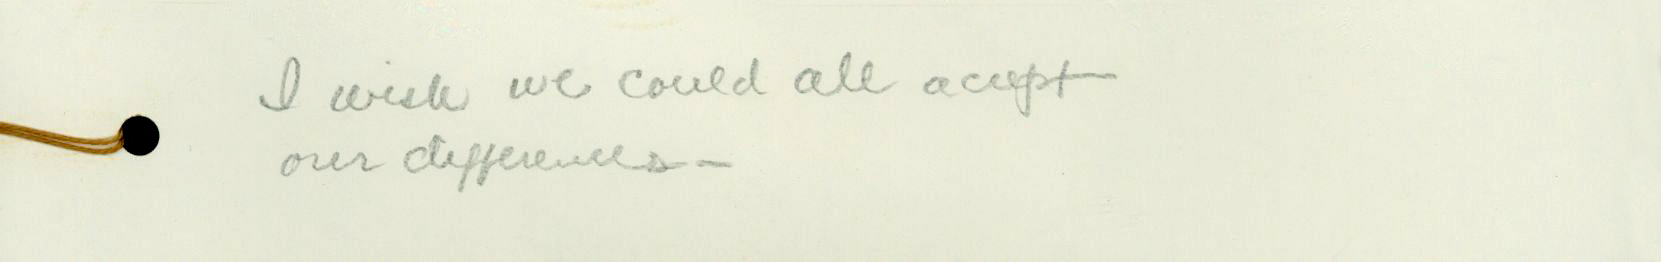 I wish we could all accept
our differences –